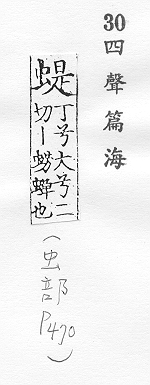 30四聲篇海
蝭
丁兮大兮二
切丨蟧蟬也
(虫部P470)